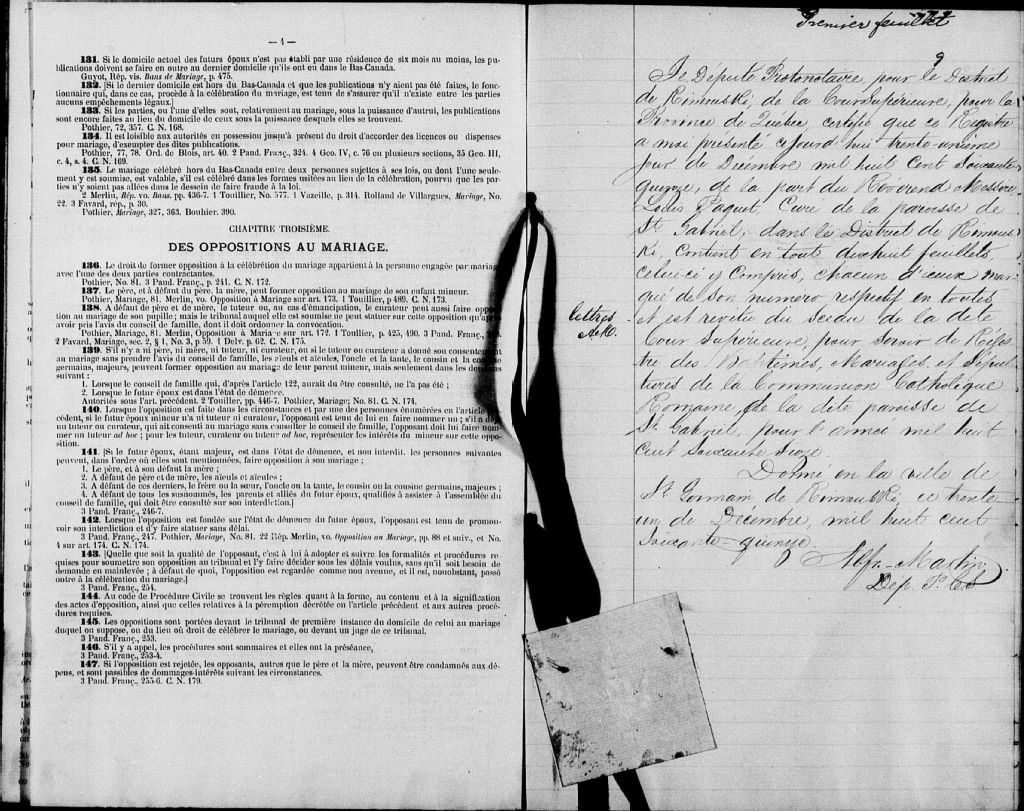 — 4 —
131. Si le domicile actuel des futurs époux n'est pas établi par une résidence de six mois au moins, les pu-
blications doivent se faire en outre au dernier domicile qu'ils ont eu dans le Bas-Canada.
Guyot, Rép. vis. Bans de Mariage, p. 475.
132. [Si le dernier domicile est hors du Bas-Canada et que les publications n'y aient pas été faites, le fonc-
tionnaire qui, dans ce cas, procède à la célébration du mariage, est tenu de s'assurer qu'il n'existe entre les parties
aucuns empêchements légaux.]
133. Si les parties, ou l'une d'elles sont, relativement au mariage, sous la puissance d'autrui, les publications
sont encore faites au lieu du domicile de ceux sous la puissance desquels elles se trouvent.
Pothier, 72, 357. C. N. 168.
134. Il est loisible aux autorités en possession jusqu'à présent du droit d'accorder des licences ou dispenses
pour mariage, d'exempter des dites publications.
Pothier, 77, 78. Ord. de Blois, art. 40. 2 Pand. Franç., 324. 4 Geo. IV, c. 76 en plusieurs sections, 35 Geo. III,
c. 4, s. 4. C. N. 169.
135. Le mariage célébré hors du Bas-Canada entre deux personnes sujettes à ses lois, ou dont l'une seule-
ment y est soumise, est valable, s'il est célébré dans les formes usitées au lieu de la célébration, pourvu que les par-
ties n'y soient pas allées dans le dessein de faire fraude à la loi.
2 Merlin, Rép. vo. Bans. pp. 436-7. 1 Touillier, No. 577. 1 Vazeille, p. 314. Rolland de Villargues, Mariage, No.
22. 3 Favard, rép., p. 30.
Pothier, Mariage, 327, 363. Bouhier. 390.
CHAPITRE TROISIÈME.
DES OPPOSITIONS AU MARIAGE.
136. Le droit de former opposition à la célébrétion du mariage appartient à la personne engagée par mariage
avec l'une des deux parties contractantes.
Pothier, No. 81. 3 Pand. Franç., p. 241. C. N. 172.
137. Le père, et à défaut du père, la mère, peut former opposition au mariage de son enfant mineur.
Pothier, Mariage, 81. Merlin, vo. Opposition à Mariage sur art. 173. 1 Touillier, p 489. C. N. 173.
138. A défaut de père et de mère, le tuteur, ou, au cas d'émancipation, le curateur peut aussi faire oppo-
tion au mariage de son pupille; mais le tribunal auquel elle est soumise ne peut statuer sur cette opposition qu'après
avoir pris l'avis du conseil de famille, dont il doit ordonner la convocation.
Pothier, Mariage, 81. Merlin, Opposition à Mariage sur art. 172. 1 Toullier, p. 425, 490. 3 Pand. Franç.,
2 Favard, Mariage, sec. 2, § 1, No. 3, p 59. 1 Delv. p. 62. C. N. 175.
139. S'il n'y a ni père, ni mère, ni tuteur, ni curateur, ou si le tuteur ou curateur a donné son consentement
au mariage sans prendre l'avis du conseil de famille, les aïeuls et aïeules, l'oncle et la tante, le cousin et la cousine
germains, majeurs, peuvent former opposition au mariage de leur parent mineur, mais seulement dans les deux
suivant :
1. Lorsque le conseil de famille qui, d'après l'article 122, aurait du être consulté, ne l'a pas été ;
2. Lorsque le futur époux est dans l'état de démence.
Autorités sous l'art. précédent. 2 Touiller, pp. 446-7. Pothier, Mariage; No. 81. C. N. 174.
140. Lorsque l'opposition est faite dans les circonstances et par une des personnes énumérées en l'article
cédent, si le futur époux mineur n'a ni tuteur ni curateur, l'opposant est tenu de lui en faire nommer un ; s'il a déjà
un tuteur ou curateur, qui ait consenti au mariage sans consulter le conseil de famille, l'opposant doit lui faire nom-
mer un tuteur ad hoc ; pour les tuteur, curateur ou tuteur ad hoc, représenter les intérêts du mineur sur cette oppo-
sition.
141. [Si le futur époux, étant majeur, est dans l'état de démence, et non interdit, les personnes suivantes
peuvent, dans l'ordre où elles sont mentionnées, faire opposition à son mariage ;
1. Le père, et à son défaut la mère ;
2. A défaut de père et de mère, les aïeuls et aïeules ;
3. A défaut de ces derniers, le frère ou la sœur, l'oncle ou la tante, le cousin ou la cousine germains, majeurs ;
4. A défaut de tous les susnommés, les parents et alliés du futur époux, qualifiés à assister à l'assemblée du
conseil de famille, qui doit être consulté sur son interdiction.]
3 Pand. Franç., 246-7.
142. Lorsque l'opposition est fondée sur l'état de démence du futur époux, l'opposant est tenu de promou-
voir son interdiction et d'y faire statuer sans délai.
3 Pand. Franç., 247. Pothier, Mariage, No. 81. 22 Rép. Merlin, vo. Opposition au Mariage, pp 88 et suiv., et No.
4 sur art. 174. C. N. 174.
143. [Quelle que soit la qualité de l'opposant, c'est à lui à adopter et suivre les formalités et procédures re-
quises pour soumettre son opposition au tribunal et l'y faire décider sous les délais voulus, sans qu'il soit besoin de
demande en mainlevée ; à défaut de quoi, l'opposition est regardée comme non avenue, et il est, nonobstant, passé
outre à la célébration du mariage.]
3 Pand. Franç., 254.
144. Au code de Procédure Civile se trouvent les règles quant à la forme, au contenu et à la signification
des actes d'opposition, ainsi que celles relatives à la péremption décrétée en l'article précédent et aux autres procé-
dures requises.
145. Les oppositions sont portées devant le tribunal de première instance du domicile de celui au mariage
duquel on suppose, ou du lieu où droit de célébrer le mariage, ou devant un juge de ce tribunal.
3 Pand. Franç., 253.
146. S'il y a appel, les procédures sont sommaires et elles ont la préséance,
3 Pand. Franç., 253-4.
147. Si l'opposition est rejetée, les opposants, autres que le père et la mère, peuvent être condamnés aux dé-
pens, et sont passibles de dommages-intérêts suivant les circonstances.
3 Pand. Franç., 255-6. C. N. 179.
Premier feuillet
Je Député Protonotaire pour le District
de Rimouski, de la Cour Supérieure, pour la
Province de Québec certifie que ce Registre
a moi présenté ce jourd'hui trente-unième
jour de Décembre mil huit cent soixante
quinze, de la part du Révérend Messire
Louis Paquet, Curé de la paroisse de
St Gabriel, dans le District de Rimous-
ki, contient en tout dixhuit feuillets,
celui-ci y compris, chacun d'iceux mar-
qué de son numéro respectif en toutes
lettres
et est revêtu du sceau de la dite
Cour Supérieure, pour servir de Régis-
tre des Baptêmes, Mariages et Sépul-
tures de la Communion Catholique
Romaine, de la dite paroisse de
St Gabriel, pour l'année mil huit
cent soixante seize.
Donné en la ville de
St Germain de Rimouski, ce trente
un de Décembre, mil huit cent
soixante-quinze
Alp. Martin
Dép. P. C. S